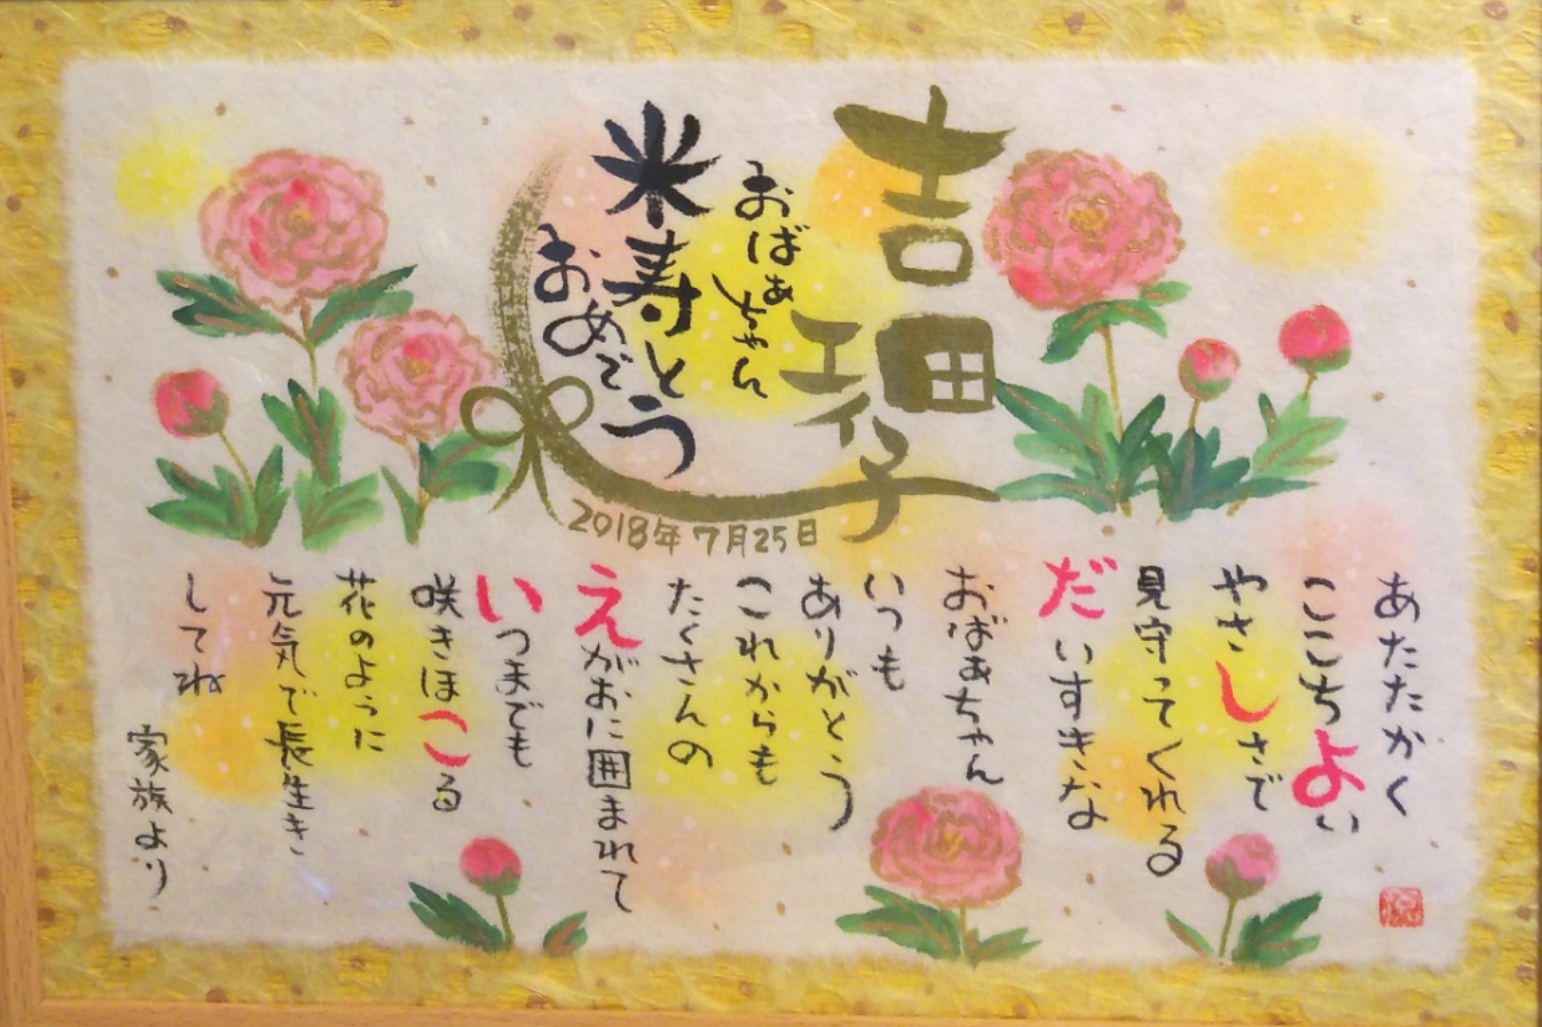 吉田
瑛子
おばぁちゃん
米寿
おめでとう
2018年7月25日
あたたかく
ここちよい
やさしさで
見守ってくれる
だいすきな
おばぁちゃん
いつも
ありがとう
これからも
たくさんの
えがおに囲まれて
いつまでも
咲きほこる
花のように
元気で長生き
してね
家族より